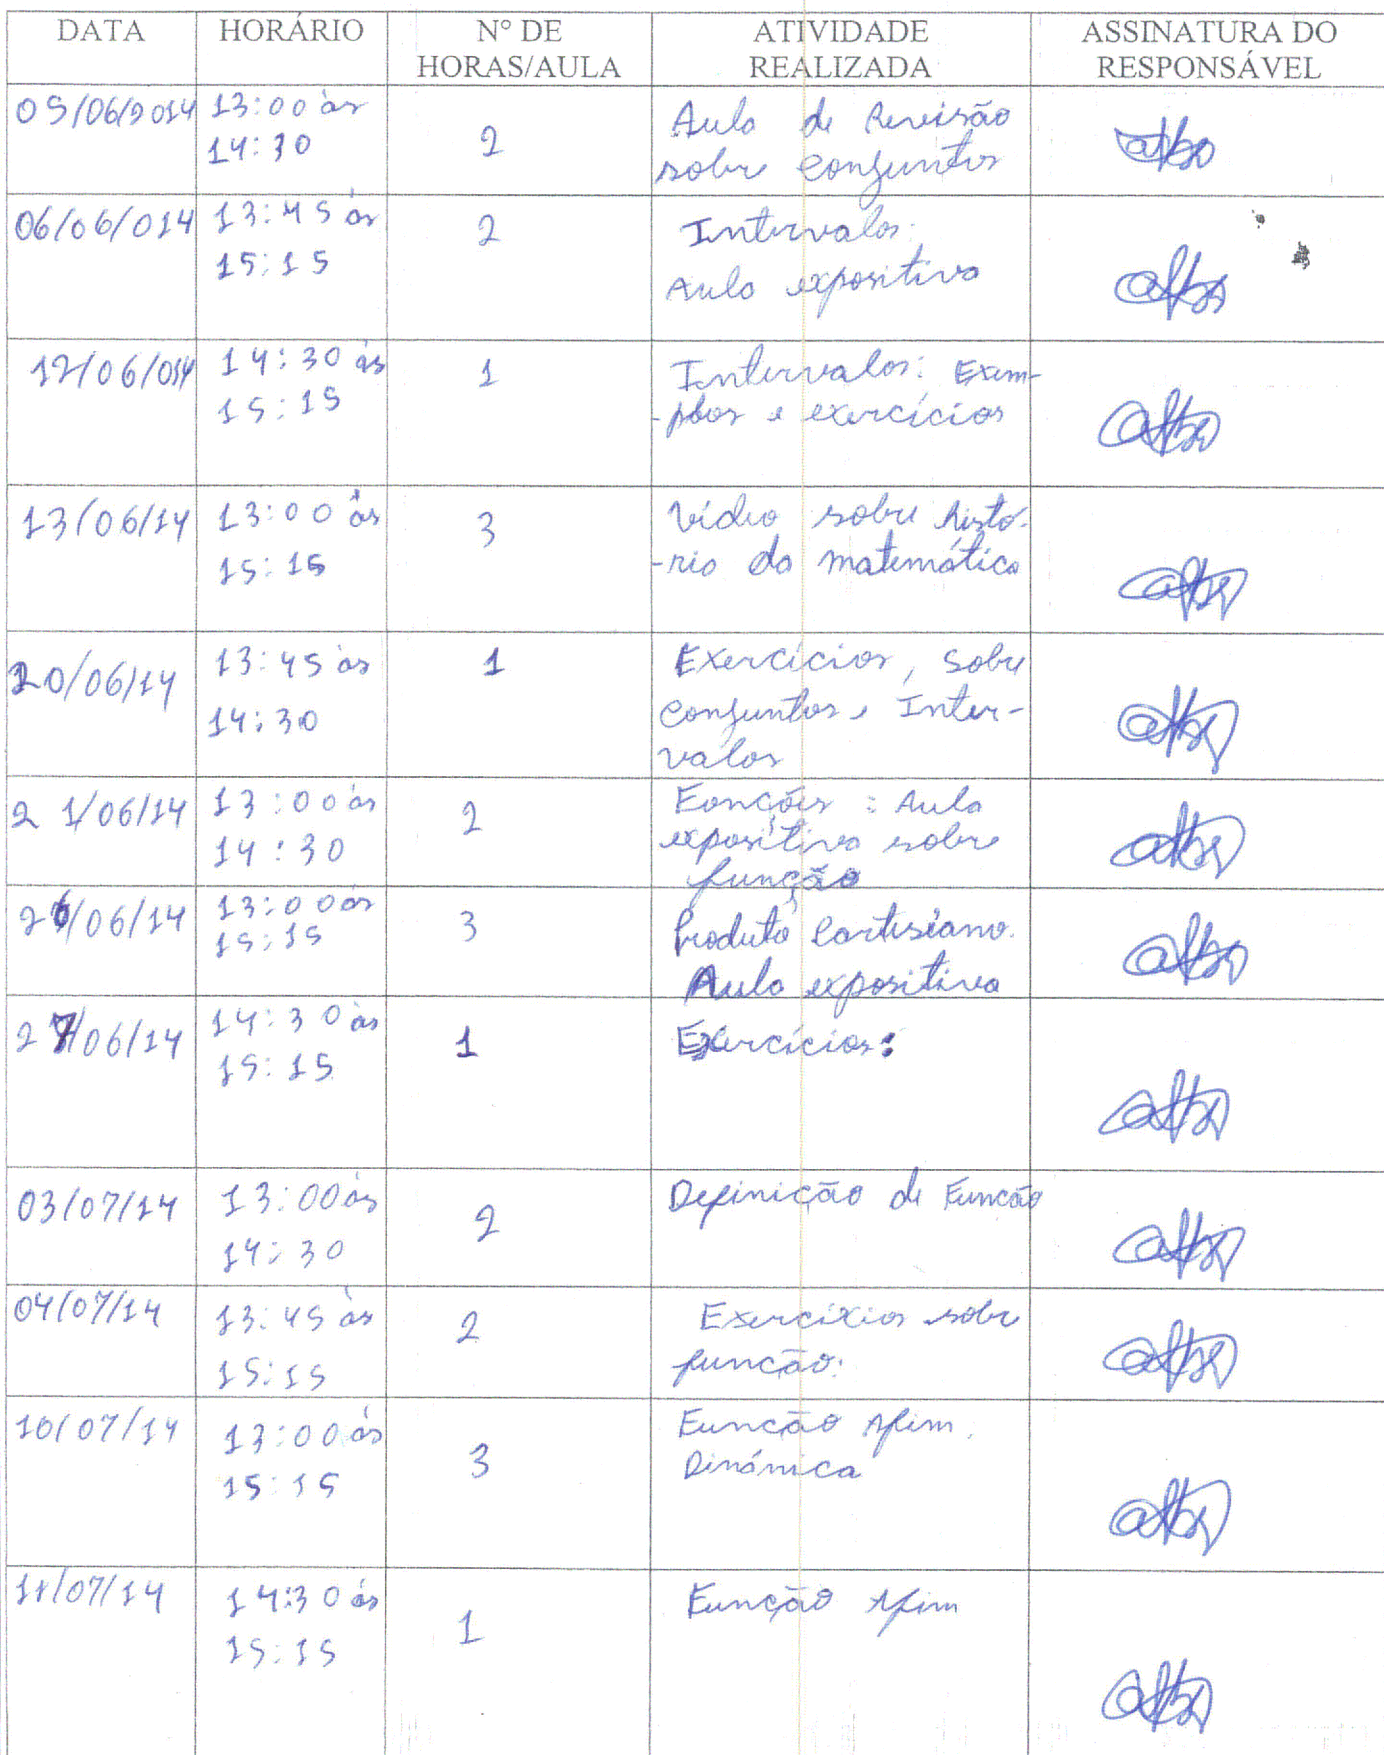 DATA HORÁRIO N° DE HORAS/AULA ATIVIDADE REALIZADA ASSINATURA DO RESPONSÁVEL
05/06/2014 13:00 às 2 Aula de Revisão
14:30 sobre conjuntos
06/06/014 13:45 às 2 Intervalos.
15:15 Aula expositiva
12/06/014 14:30 às 1 Intervalos: Exem-
15:15 -plos e exercícios
13/06/14 13:00 às 3 Vídeo sobre histó-
15:15 -ria da matemática
20/06/14 13:45 às 1 Exercícios, sobre
14:30 conjuntos e Inter-
valos
21/06/14 13:00 às 2 Funções: Aula
14:30 expositiva sobre
função
26/06/14 13:00 às 3 Produto Cartesiano.
15:15 Aula expositiva
27/06/14 14:30 às 1 Exercícios:
15:15
03/07/14 13:00 às 2 Definição de Funcão
14:30
04/07/14 13:45 às 2 Exercíxios sobre
15:15 funcão.
10/07/14 13:00 às 3 Funcão Afim.
15:15 Dinâmica
11/07/14 14:30 às 1 Função Afim
15:15